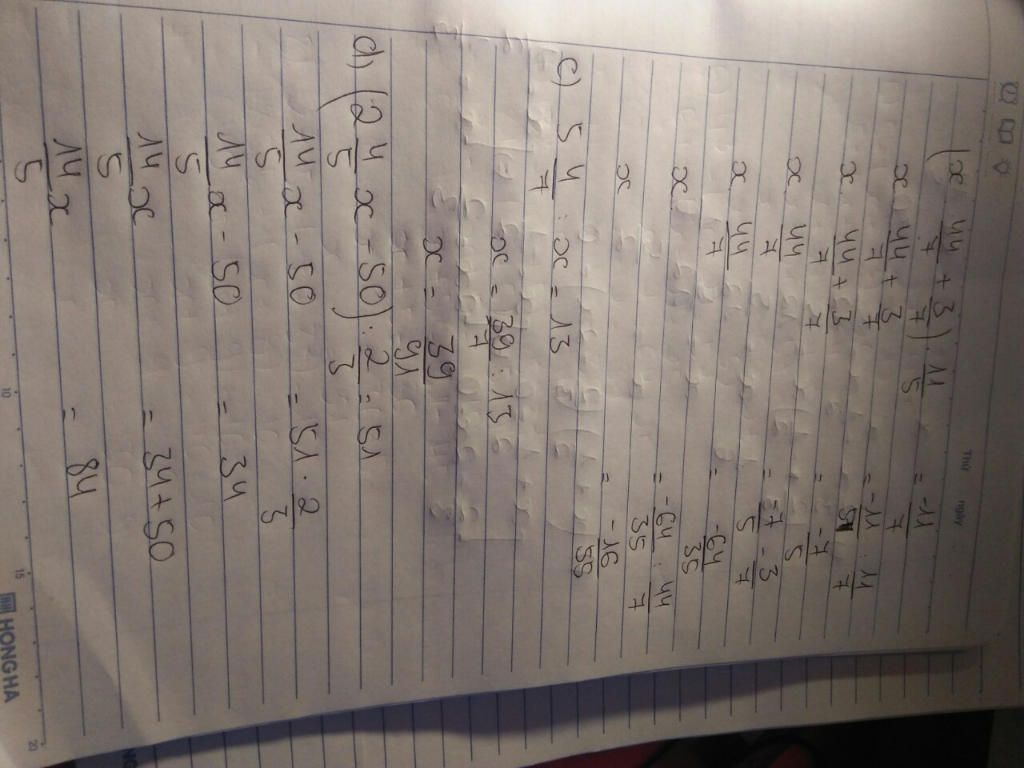 Thứ ngày
(x 44/7 + 3/7) . 11/5 = -11/7
x 44/7 + 3/7 = -11/5 : 11/7
x 44/7 + 3/7 = -7/5
x 44/7 = -7/5 - 3/7
x 44/7 = -64/35
x = -64/35 : 44/7
x = -16/55
c) 5 4/7 : x = 13
x = 39/7 : 13
x = 39/91
d) (2 4/5 x - 50) : 2/3 = 51
14/5 x - 50 = 51 . 2/3
14/5 x - 50 = 34
14/5 x = 34 + 50
14/5 x = 84
10 15 20
HONG HA